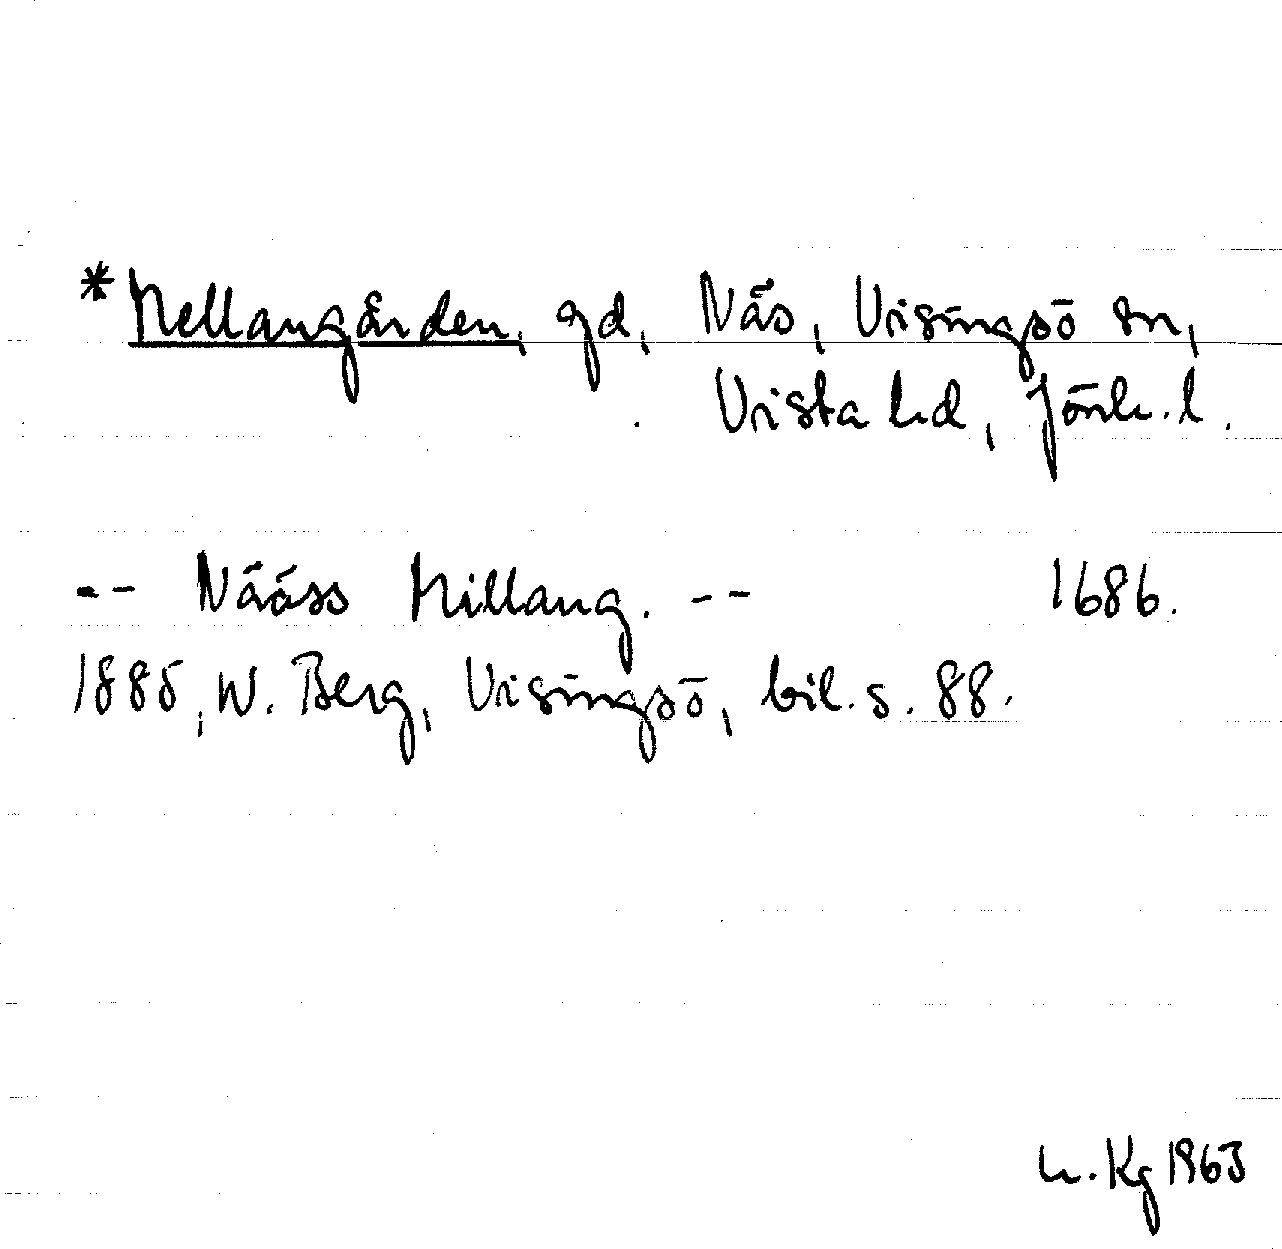 *Mellangården, gd, Näs, Visingsö sn,
Vista hd, Jönk. l.
-- Nääss Millang. -- 1686.
1885, W. Berg, Visingsö, bil. s. 88.
Kg 1963